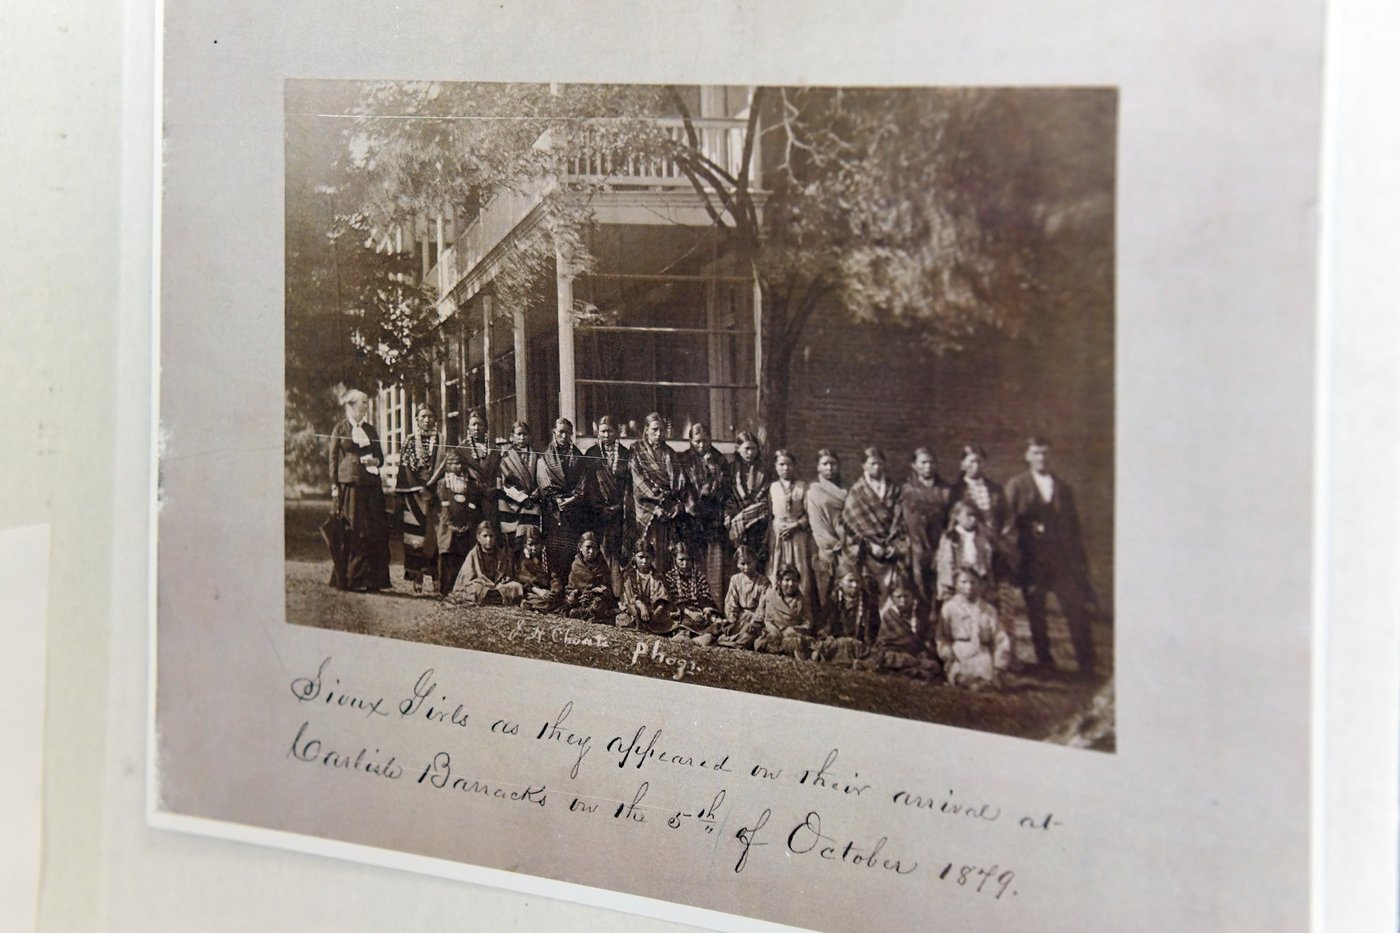 J. N. Choate
Phogr.
Sioux Girls as they appeared on their arrival at
Carlisle Barracks on the 5th of October 1879.